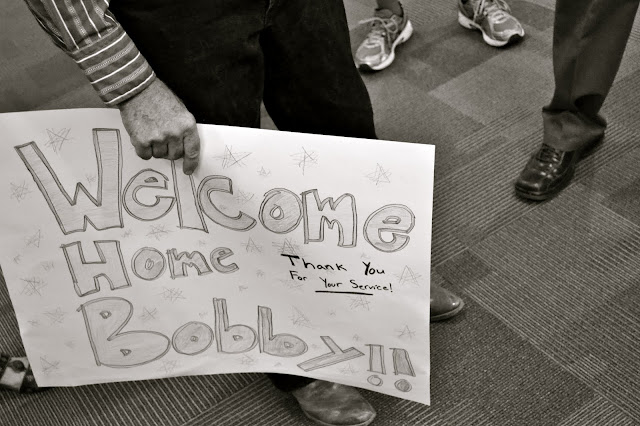 Welcome
Home
Thank You
For Your Service!
Bobby!!